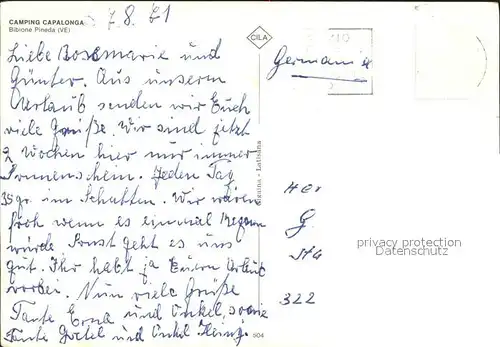 CAMPING CAPALONGA
Bibione Pineda (VE)
7.8.71
CILA
Liebe Rosemarie und
Günter. Aus unserm
Urlaub senden wir Euch
viele Grüße. Wir sind jetzt
2 Wochen hier nur immer
Sonnenschein. Jeden Tag
35 gr. im Schatten. Wir wären
froh wenn es einmal Regnen
würde Sonst geht es uns
gut. Ihr habt ja Euern Urlaub
vorbei. Nun viele Grüße
Tante Erna und Onkel, sowie
Tante Gretel und Onkel Heinz.
Germania
Her
G.
Latisana
privacy protection
Datenschutz
322
504